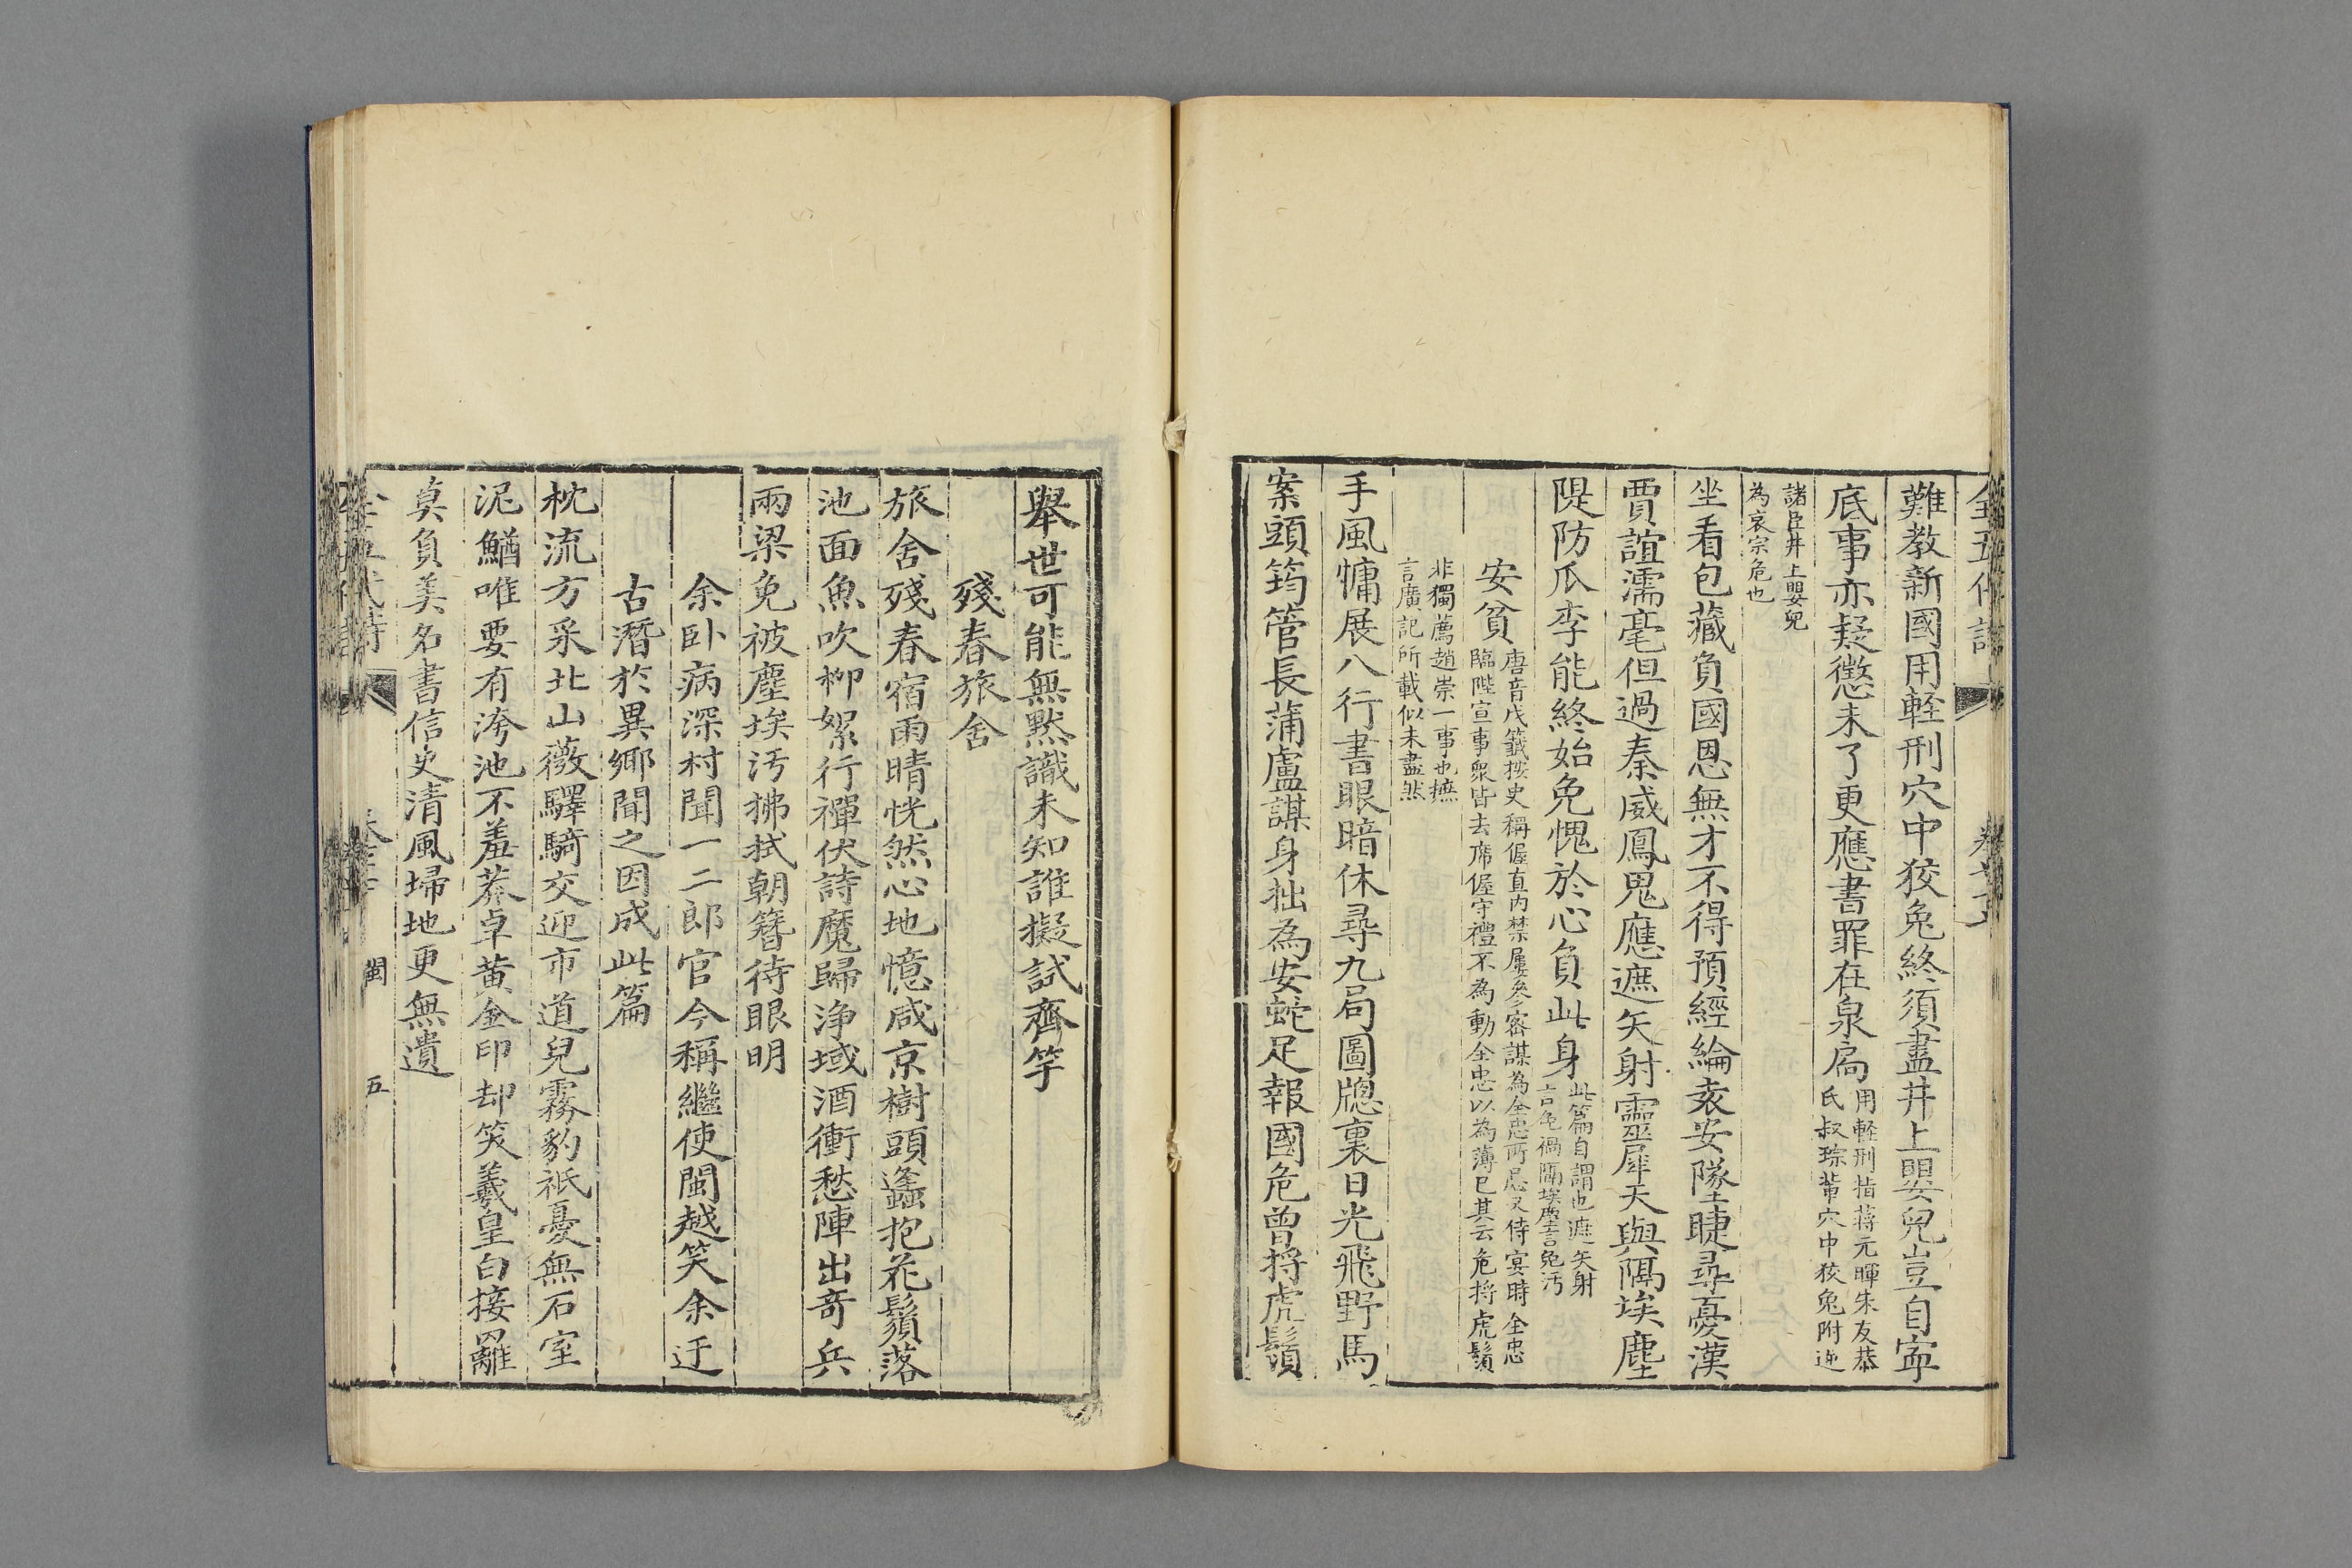 難教新國用輕刑穴中狡兔終須盡井上嬰兒豈自寧
底事亦疑懲未了更應書罪在泉扃
用輕刑指蔣元暉朱友恭
氏叔琮輩穴中狡兔附逆
諸臣井上嬰兒
為哀宗危也
坐看包藏負國恩無才不得預經綸袁安墜睫尋憂漢
賈誼濡毫但過秦威鳳鬼應遮矢射靈犀天與隔埃塵
隄防瓜李能終始免愧於心負此身
此篇自謂也遮矢射
言免禍隔埃塵言免汚
安貧
唐音戊籤按史稱偓直内禁屢參密謀為全忠所忌又侍宴時全忠
臨陛宣事衆皆去席偓守禮不為動全忠以為薄已其云危捋虎鬚
非獨薦趙崇一事也摭
言廣記所載似未盡然
手風慵展八行書眼暗休尋九局圖牕裏日光飛野馬
案頭筠管長蒲盧謀身拙為安蛇足報國危曾捋虎鬚
舉世可能無默識未知誰擬試齊竽
殘春旅舍
旅舍殘春宿雨晴恍然心地憶咸京樹頭蠭抱花鬚落
池面魚吹柳絮行禪伏詩魔歸浄域酒衝愁陣出奇兵
兩梁免被塵埃汚拂拭朝簪待眼明
余卧病深村聞一二郎官今稱繼使閩越笑余迂
古潛於異鄉聞之因成此篇
枕流方采北山薇驛騎交迎市道兒霧豹祇憂無石室
泥鰌唯要有洿池不羞莽卓黄金印却笑羲皇白接䍦
莫負美名書信史清風埽地更無遺
閩
五